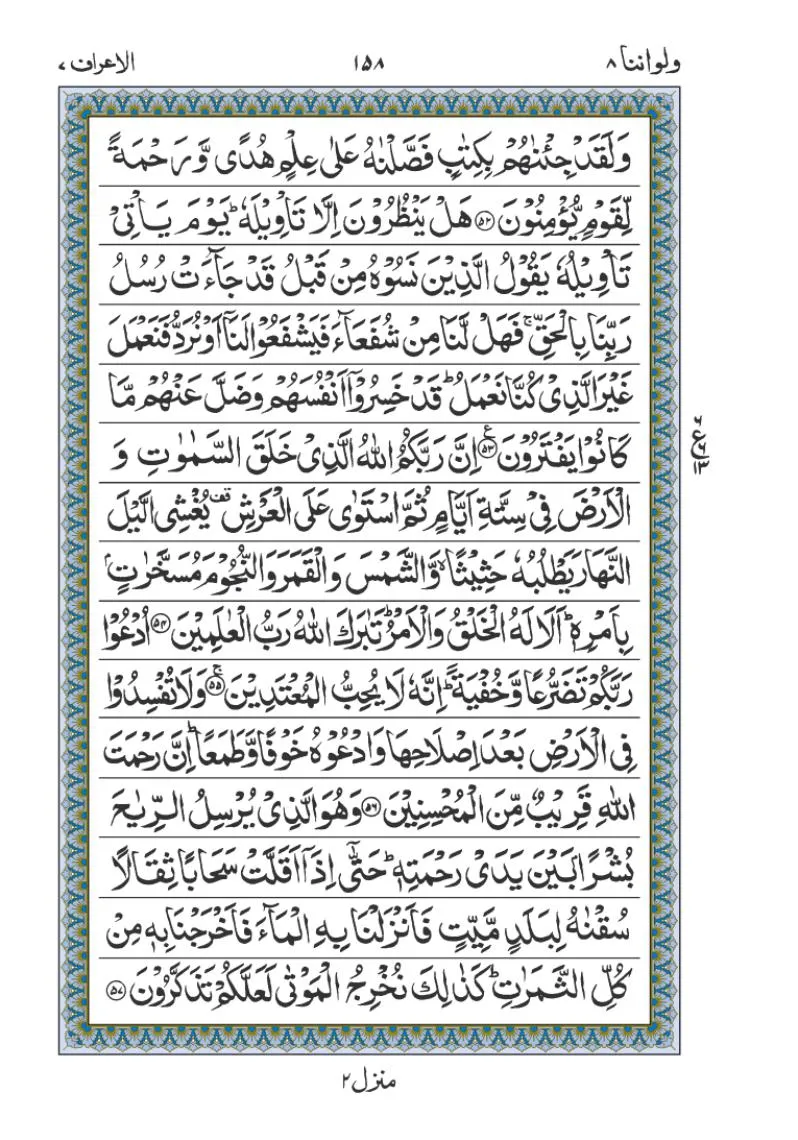 ولواننا ۸
۱۵۸
الاعراف ۷
وَلَقَدْ جِئْنٰهُمْ بِكِتٰبٍ فَصَّلْنٰهُ عَلٰى عِلْمٍ هُدًى وَّرَحْمَةً
لِّقَوْمٍ يُّؤْمِنُوْنَ ﴿۵۲﴾ هَلْ يَنْظُرُوْنَ اِلَّا تَاْوِيْلَهٗ ؕ يَوْمَ يَاْتِيْ
تَاْوِيْلُهٗ يَقُوْلُ الَّذِيْنَ نَسُوْهُ مِنْ قَبْلُ قَدْ جَآءَتْ رُسُلُ
رَبِّنَا بِالْحَقِّ ۚ فَهَلْ لَّنَا مِنْ شُفَعَآءَ فَيَشْفَعُوْا لَنَاۤ اَوْ نُرَدُّ فَنَعْمَلَ
غَيْرَ الَّذِيْ كُنَّا نَعْمَلُ ؕ قَدْ خَسِرُوْۤا اَنْفُسَهُمْ وَضَلَّ عَنْهُمْ مَّا
كَانُوْا يَفْتَرُوْنَ ﴿۵۳﴾ ع اِنَّ رَبَّكُمُ اللّٰهُ الَّذِيْ خَلَقَ السَّمٰوٰتِ وَ
الْاَرْضَ فِيْ سِتَّةِ اَيَّامٍ ثُمَّ اسْتَوٰى عَلَى الْعَرْشِ ۫ يُغْشِى الَّيْلَ
النَّهَارَ يَطْلُبُهٗ حَثِيْثًا ۙ وَّالشَّمْسَ وَالْقَمَرَ وَالنُّجُوْمَ مُسَخَّرٰتٍۭ
بِاَمْرِهٖ ؕ اَلَا لَهُ الْخَلْقُ وَالْاَمْرُ ؕ تَبٰرَكَ اللّٰهُ رَبُّ الْعٰلَمِيْنَ ﴿۵۴﴾ اُدْعُوْا
رَبَّكُمْ تَضَرُّعًا وَّخُفْيَةً ؕ اِنَّهٗ لَا يُحِبُّ الْمُعْتَدِيْنَ ﴿۵۵﴾ ۚ وَلَا تُفْسِدُوْا
فِي الْاَرْضِ بَعْدَ اِصْلَاحِهَا وَادْعُوْهُ خَوْفًا وَّطَمَعًا ؕ اِنَّ رَحْمَتَ
اللّٰهِ قَرِيْبٌ مِّنَ الْمُحْسِنِيْنَ ﴿۵۶﴾ وَهُوَ الَّذِيْ يُرْسِلُ الرِّيٰحَ
بُشْرًاۢ بَيْنَ يَدَيْ رَحْمَتِهٖ ؕ حَتّٰۤى اِذَاۤ اَقَلَّتْ سَحَابًا ثِقَالًا
سُقْنٰهُ لِبَلَدٍ مَّيِّتٍ فَاَنْزَلْنَا بِهِ الْمَآءَ فَاَخْرَجْنَا بِهٖ مِنْ
كُلِّ الثَّمَرٰتِ ؕ كَذٰلِكَ نُخْرِجُ الْمَوْتٰى لَعَلَّكُمْ تَذَكَّرُوْنَ ﴿۵۷﴾
منزل ۲